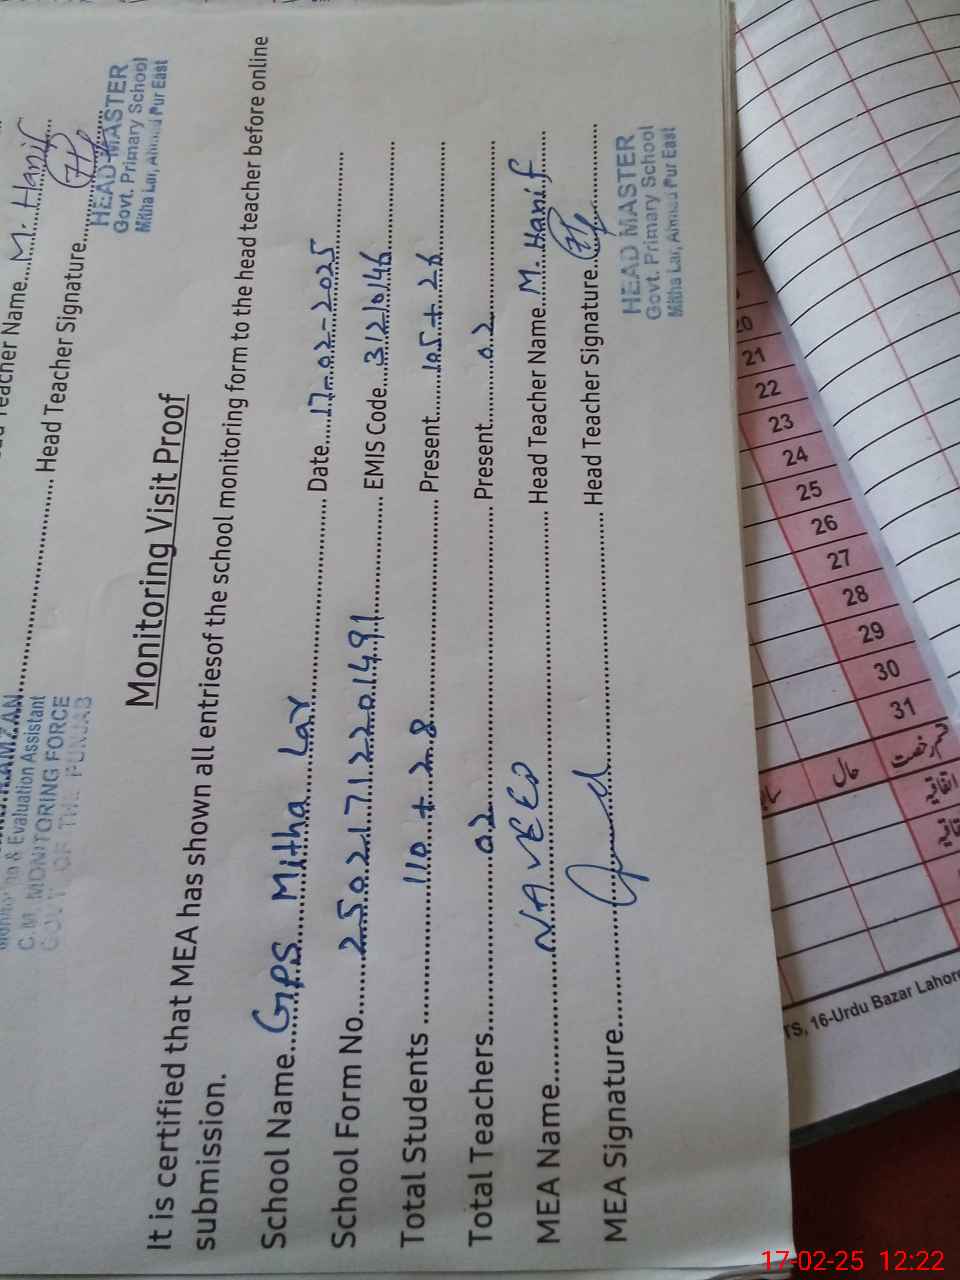 Teacher Name....M. Hanif
Head Teacher Signature
HEAD MASTER
Govt. Primary School
Mitha Lar, Ahmed Pur East
& Evaluation Assistant
C.M. MONITORING FORCE
GOVT. OF THE PUNJAB
Monitoring Visit Proof
It is certified that MEA has shown all entriesof the school monitoring form to the head teacher before online
submission.
School Name....GPS Mitha Lar....Date....17-02-2025
School Form No....25021712201491....EMIS Code....31210146
Total Students....110 + 28....Present....105 + 26
Total Teachers....02....Present....02
MEA Name....NAVEED....Head Teacher Name....M. Hanif
MEA Signature....Head Teacher Signature
HEAD MASTER
Govt. Primary School
Mitha Lar, Ahmed Pur East
20
21
22
23
24
25
26
27
28
29
30
31
حال
اتفاقیہ
16-Urdu Bazar Lahore
17-02-25 12:22